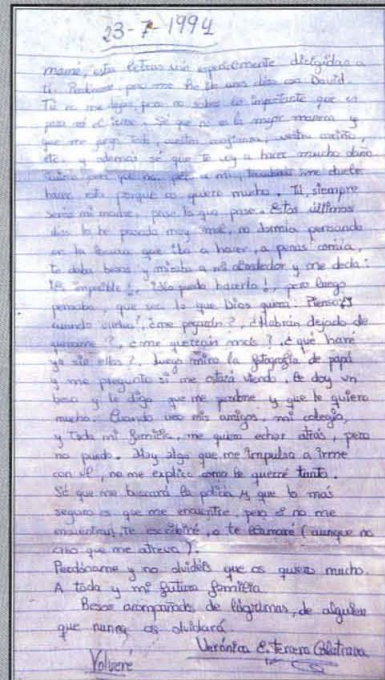 23-7-1994
mamá, estas letras van especialmente dirigidas a
ti. Perdóname pero me he ido unos días con David.
Tú no me dejas, pero no sabes lo importante que es
para mí el irme. Sé que no es la mejor manera y
que me juego todo, vuestra confianza, vuestro cariño,
etc. y además sé que te voy a hacer mucho daño
pero a mí también me duele
hacer esto porque os quiero mucho. Tú, siempre
serás mi madre, pase lo que pase. Estos últimos
días lo he pasado muy mal, no dormía pensando
en la locura que iba a hacer, a penas comía,
te daba besos y miraba a mi alrededor y me decía:
¡Es imposible!, ¡No puedo hacerlo!, pero luego
pensaba, que sea lo que Dios quiera. Pienso, y
cuando vuelva?, ¿me pegarán?, ¿Habrán dejado de
quererme?, ¿me querrán más?, ¿qué haré
yo sin ellos?, luego miro la fotografía de papá
y me pregunto si me estará viendo, le doy un
beso y le digo que me perdone y que le quiero
mucho. Cuando veo mis amigos, mi colegio,
y toda mi familia, me quiero echar atrás, pero
no puedo. Hay algo que me impulsa a irme
con él, no me explico como le querré tanto.
Sé que me buscará la policía y que lo más
seguro es que me encuentre, pero si no me
encuentran, te escribiré, o te llamaré (aunque no
creo que me atreva).
Perdóname y no olvidéis que os quiero mucho.
A toda y mi futura familia
Besos acompañados de lágrimas, de alguien
que nunca os olvidará.
Verónica E. Tercero Calatrava
Volveré